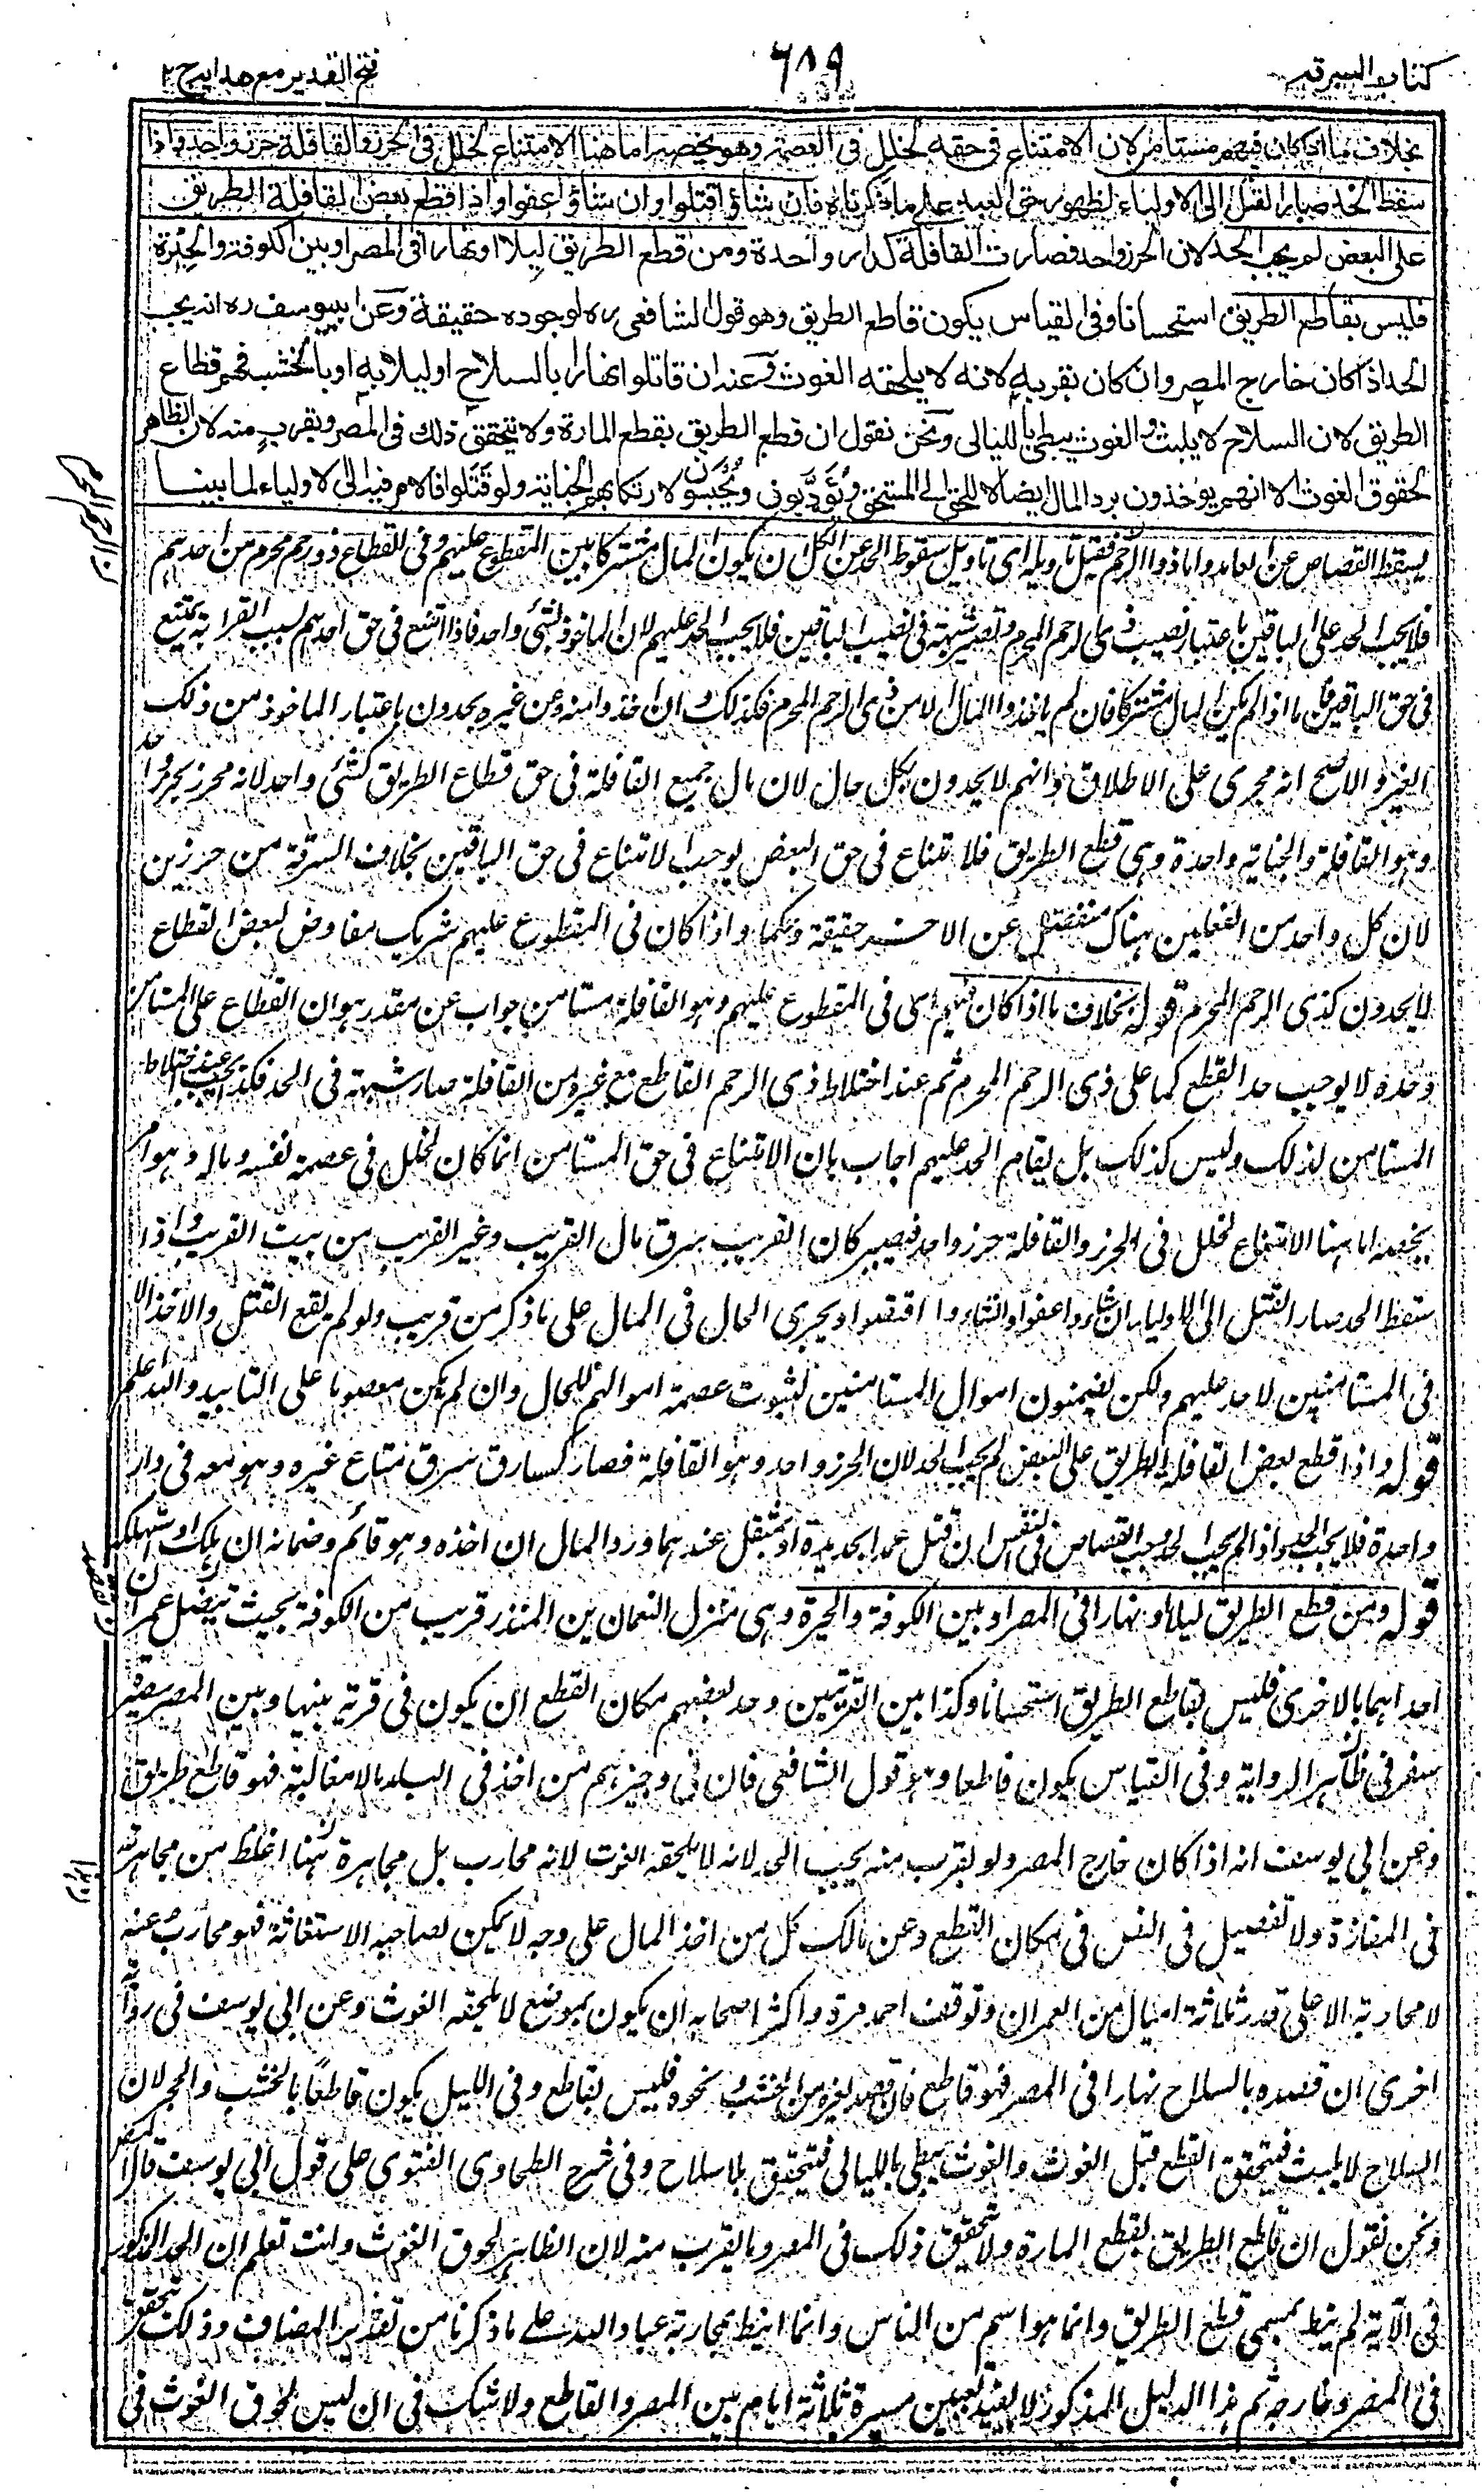 كتاب السرقة
٦٨٩
فتح القدير مع هدايه ج ٢
بخلاف ما اذا كان فيهم مستامن لان الامتناع فى حقه لخلل فى العصمة وهو يخصه اما هنا الامتناع لخلل فى الحرز والقافلة حرز واحد واذا
سقط الحد صار القتل الى الاولياء لظهور حق العبد على ما ذكرناه فان شاؤا قتلوا وان شاؤا عفوا واذا قطع بعض القافلة الطريق
على البعض لم يجب الحد لان الحرز واحد فصارت القافلة كدار واحدة ومن قطع الطريق ليلا او نهارا فى المصر او بين الكوفة والحيرة
فليس بقاطع الطريق استحسانا وفى القياس يكون قاطع الطريق وهو قول الشافعى ره لوجوده حقيقة وعن ابى يوسف ره انه يجب
الحد اذا كان خارج المصر وان كان بقربه لانه لا يلحقه الغوث وعنه ان قاتلوا نهارا بالسلاح او ليلا به او بالخشب فهم قطاع
الطريق لان السلاح لا يلبث والغوث يبطئ بالليالى ونحن نقول ان قطع الطريق بقطع المارة ولا يتحقق ذلك فى المصر وبقرب منه لان الظاهر
لحقوق الغوث الا انهم يوخذون برد المال ايضالا للحق الى المستحق ويؤدبون ويحبسون لارتكابهم الجناية ولو قتلوا فالامر فيه الى الاولياء لما بينا
يسقط القصاص عن العامد واما ذوا الرحم فقيل تاويله اى تاويل سقوط الحد عن الكل ان يكون المال مشتركا بين المقطوع عليهم وفى القطاع ذو رحم محرم من احدهم
فلا يجب الحد على الباقين باعتبار نصيب ذى الرحم المحرم وتصير شبهة فى نصيب الباقين فلا يجب الحد عليهم لان الماخوذ شئ واحد فاذا امتنع فى حق احدهم لسبب القرابة يمتنع
فى حق الباقين فاما اذا لم يكن المال مشتركا فان لم ياخذوا المال الا من ذى الرحم المحرم فكذلك وان اخذوا منه ومن غيره يحدون باعتبار الماخوذ من ذلك
الغير والاصح انه مجرى على الاطلاق وانهم لا يحدون بكل حال لان مال جميع القافلة فى حق قطاع الطريق كشئ واحد لانه محرز بحرز واحد
وهو القافلة والجناية واحدة وهى قطع الطريق فالامتناع فى حق البعض يوجب الامتناع فى حق الباقين بخلاف السرقة من حرزين
لان كل واحد من الفعلين هناك منفصل عن الاخر حقيقة وحكما واذا كان فى المقطوع عليهم شريك مفاوض لبعض القطاع
لا يحدون كذى الرحم المحرم قوله بخلاف ما اذا كان فيهم اى فى المقطوع عليهم وهو القافلة مستامن جواب عن مقدر هو ان القطاع على المستامن
وحده لا يوجب حد القطع كما على ذى الرحم المحرم ثم عند اختلاط ذى الرحم القاطع مع غيره من القافلة صار شبهة فى الحد فكذا يجب عند اختلاط
المستامن لذلك وليس كذلك بل يقام الحد عليهم اجاب بان الامتناع فى حق المستامن انما كان لخلل فى عصمة نفسه وماله وهو امر
يخصه اما هنا الامتناع لخلل فى الحرز والقافلة حرز واحد فيصير كان القريب سرق مال القريب وغير القريب من بيت القريب واذا
سقط الحد صار القتل الى الاولياء ان شاؤا عفوا وان شاؤا اقتصوا ويجرى الحال فى المال على ما ذكر من قريب ولو لم يقع القتل والاخذ الا
فى المستامنين لا حد عليهم ولكن يضمنون اموال المستامنين لثبوت عصمة اموالهم للحال وان لم يكن معصوما على التابيد والله اعلم
قوله واذا قطع بعض القافلة الطريق على البعض لم يجب الحد لان الحرز واحد وهو القافلة فصار كسارق سرق متاع غيره وهو معه فى دار
واحدة فلا يجب الحد واذا لم يجب الحد وجب القصاص فى النفس ان قتل عمدا بحديدة او بمثقل عندهما ورد المال ان اخذه وهو قائم وضمانه ان هلك او استهلكه
قوله ومن قطع الطريق ليلا او نهارا فى المصر او بين الكوفة والحيرة وهى منزل النعمان بن المنذر قريب من الكوفة بحيث يتصل عمران
احداهما بالاخرى فليس بقاطع الطريق استحسانا وكذا بين القريتين وحد بعضهم مكان القطع ان يكون فى قرية بينها وبين المصر مسيرة
سفر فى ظاهر الرواية وفى القياس يكون قاطعا وهو قول الشافعى فان فى وجيزهم من اخذ فى البلد مالا مغالبة فهو قاطع طريق
وعن ابى يوسف انه اذا كان خارج المصر ولو بقرب منه يجب الحد لانه لا يلحقه الغوث لانه محارب بل مجاهرة هنا اغلظ من مجاهرته
فى المفازة ولا تفصيل فى النص فى مكان القطع وعن مالك كل من اخذ المال على وجه لا يمكن لصاحبه الاستغاثة فهو محارب وعنه
لا محاربة الا على قدر ثلاثة اميال من العمران وتوقف احمد مرة واكثر اصحابه ان يكون بموضع لا يلحقه الغوث وعن ابى يوسف فى رواية
اخرى ان قصده بالسلاح نهارا فى المصر فهو قاطع فان قصد بغيره من الخشب ونحوه فليس بقاطع وفى الليل يكون قاطعا بالخشب والحجر لان
السلاح لا يلبث فيتحقق القطع قبل الغوث والغوث يبطئ بالليالى فيتحقق بلا سلاح وفى شرح الطحاوى الفتوى على قول ابى يوسف قال المصنف
ونحن نقول ان قطع الطريق بقطع المارة ولا يتحقق ذلك فى المصر وبالقرب منه لان الظاهر لحوق الغوث وانت تعلم ان الحد المذكور
فى الآية لم ينط بمسمى قطع الطريق وانما هو اسم من الناس وانما انيط بمحاربة عباد الله على ما ذكرنا من تقدير المضاف وذلك يتحقق
فى المصر وخارجه ثم هذا الدليل المذكور لا يفيد تعيين مسيرة ثلاثة ايام بين المصر والقاطع ولا شك فى ان ليس لحوق الغوث فى